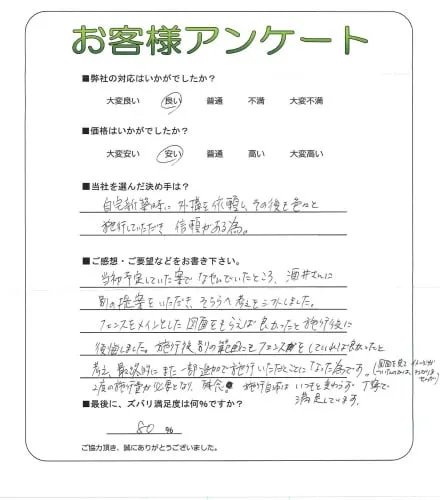 お客様アンケート
■弊社の対応はいかがでしたか？
大変良い 良い 普通 不満 大変不満
■価格はいかがでしたか？
大変安い 安い 普通 高い 大変高い
■当社を選んだ決め手は？
自宅新築時に外構を依頼し、その後も色々と
施行していただき、信頼がある為。
■ご感想・ご要望などをお書き下さい。
当初予定していた案でなやんでいたところ、酒井さんに
別の提案をいただき、そちらへ考えをシフトしました。
フェンスをメインとした図面をもらえば良かったと施行後に
後悔しました。施行後、別の範囲もフェンスをしていれば良かったと
考え、最終的にまた一部追加で施行いただくことになった為です。(図面を見てイメージが
2度の施行費が必要となり、残念。施行自体はいつもと変わらず、丁寧で
満足しています。
■最後に、ズバリ満足度は何％ですか？
80 ％
ご協力頂き、誠にありがとうございました。